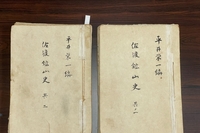 平井栄一編
佐渡鉱山史 其ノ一
平井栄一編
佐渡鉱山史 其ノ二